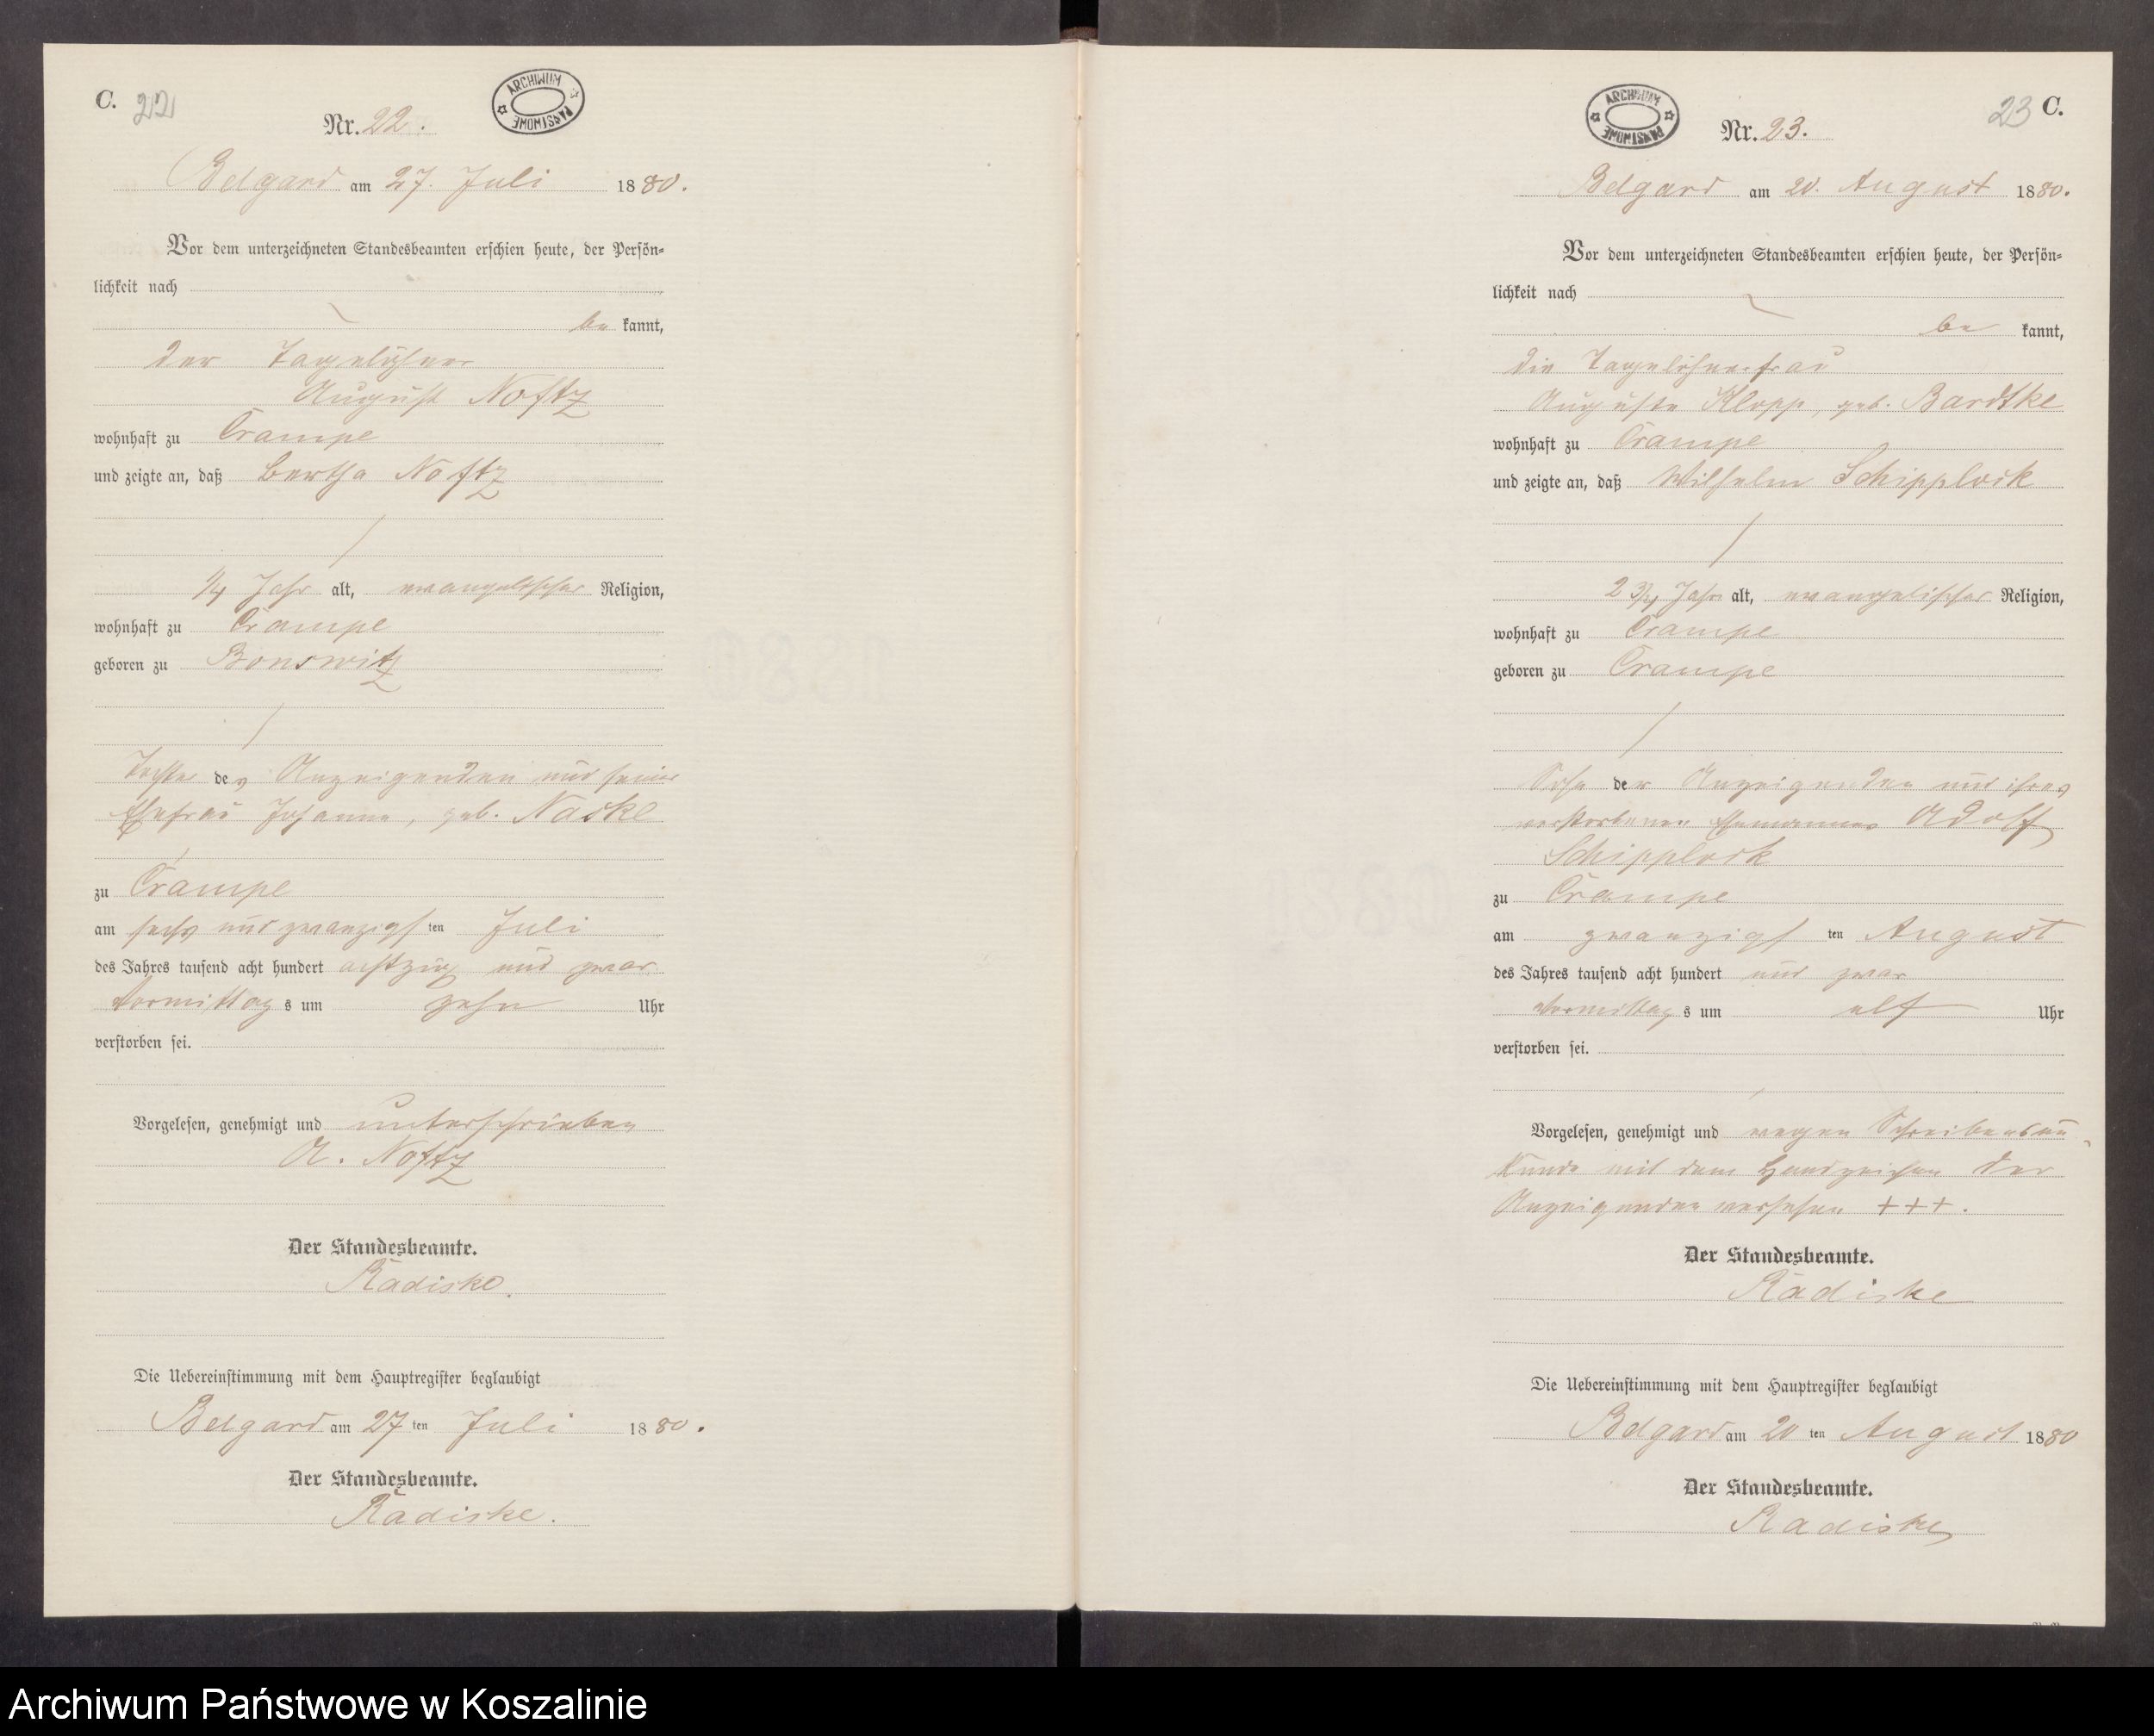 C. 22
ARCHIWUM PAŃSTWOWE
Nr. 22.
Belgard am 27. Juli 1880.
Vor dem unterzeichneten Standesbeamten erschien heute, der Persön-
lichkeit nach
be kannt,
der Tagelöhner
August Noftz
wohnhaft zu Crampe
und zeigte an, daß Bertha Noftz
1/4 Jahr alt, evangelischer Religion,
wohnhaft zu Crampe
geboren zu Bonswitz
Tochter des Anzeigenden und seiner
Ehefrau Johanna, geb. Naske
zu Crampe
am sechs und zwanzigsten Juli
des Jahres tausend acht hundert achtzig und zwar
Vormittags um zehn Uhr
verstorben sei.
Vorgelesen, genehmigt und unterschrieben
A. Noftz
Der Standesbeamte.
Radiske.
Die Uebereinstimmung mit dem Hauptregister beglaubigt
Belgard am 27ten Juli 1880.
Der Standesbeamte.
Radiske.
ARCHIWUM PAŃSTWOWE
23 C.
Nr. 23.
Belgard am 20. August 1880.
Vor dem unterzeichneten Standesbeamten erschien heute, der Persön-
lichkeit nach
be kannt,
die Tagelöhnerfrau
Auguste Klopp, geb. Bardtke
wohnhaft zu Crampe
und zeigte an, daß Wilhelm Schipplock
2 3/4 Jahr alt, evangelischer Religion,
wohnhaft zu Crampe
geboren zu Crampe
Sohn der Anzeigenden und ihres
verstorbenen Ehemannes Adolf
Schipplock
zu Crampe
am zwanzigsten August
des Jahres tausend acht hundert und zwar
Vormittags um elf Uhr
verstorben sei.
Vorgelesen, genehmigt und wegen Schreibensun-
kunde mit dem Handzeichen der
Anzeigenden versehen +++.
Der Standesbeamte.
Radiske
Die Uebereinstimmung mit dem Hauptregister beglaubigt
Belgard am 20ten August 1880
Der Standesbeamte.
Radiske
Archiwum Państwowe w Koszalinie